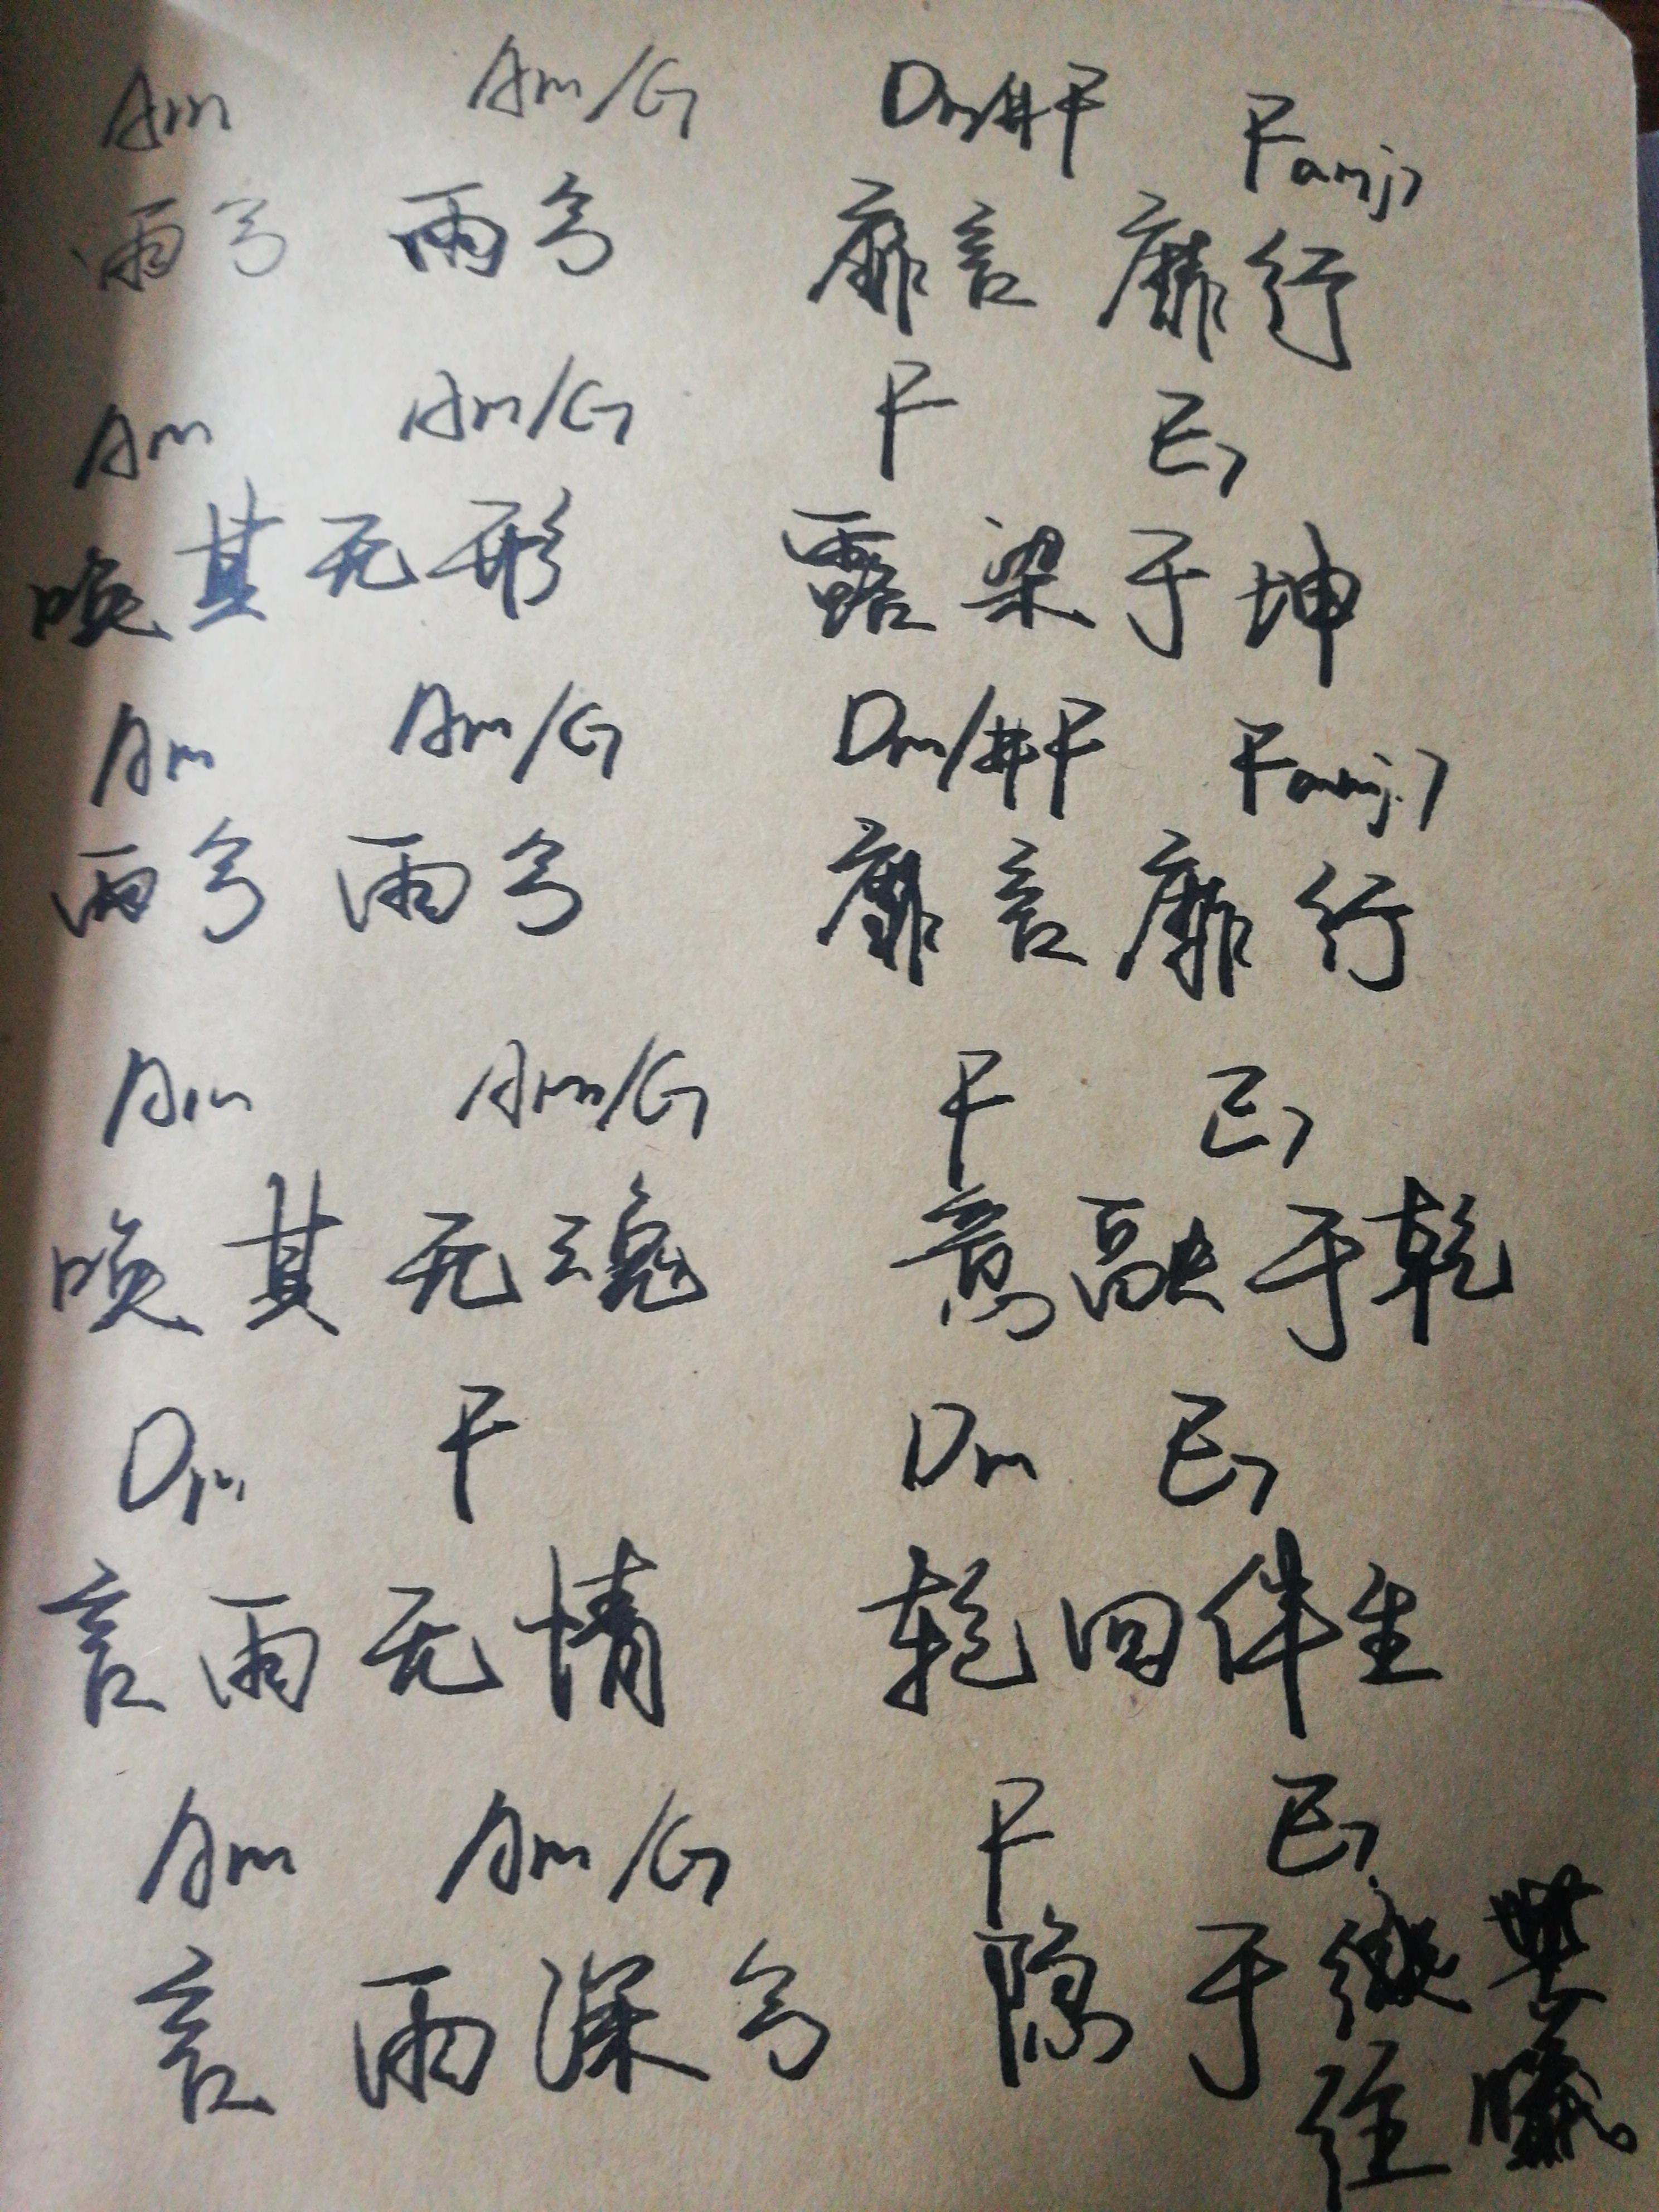 Am Am/G Dm/#F Famj7
雨兮 雨兮 靡言 靡行
Am Am/G F E7
唤其无形 露染于坤
Am Am/G Dm/#F Famj7
雨兮 雨兮 靡言 靡行
Am Am/G F E7
唤其无魂 意融于乾
Dm F Dm E7
言雨无情 乾回伴生
Am Am/G F E7
言雨深兮 隐于